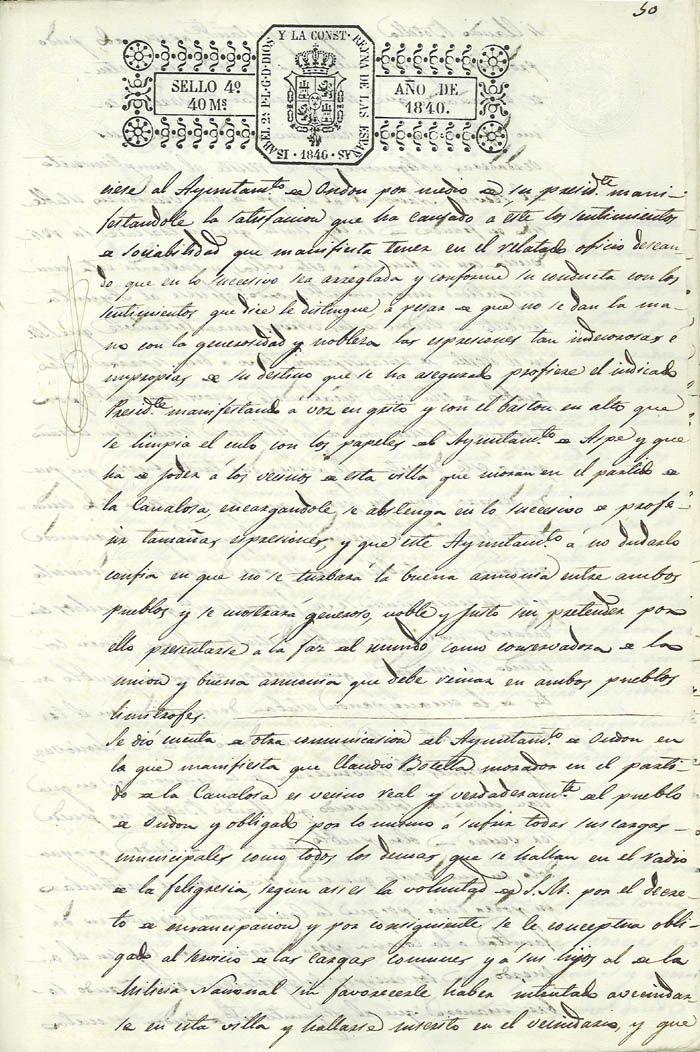 50
ISABEL 2ª P·L·G·D·DIOS Y LA CONST· REYNA DE LAS ESPAÑAS ·1840·
SELLO 4º
40 Ms
AÑO DE
1840.
ciese al Ayuntam.to de Ondon por medio de su presid.te mani-
festandole la satisfacion que ha causado á éste los sentimientos
de sociabilidad que manifiesta tener en el relatado oficio desean-
do que en lo sucesivo sea arreglada y conforme su conducta con los
sentimientos que dice le distingue á pesar de que no se dan la ma-
no con la generosidad y nobleza las espresiones tan indecorosas e
impropias de su destino que se ha asegurado profiere el indicado
Presid.te manifestando á voz en grito y con el baston en alto que
se limpia el culo con los papeles del Ayuntam.to de Aspe y que
ha de joder a los vecinos de esta villa que moran en el partido de
la Canalosa, encargandole se abstenga en lo sucesivo de profe-
rir tamañas espresiones, y que este Ayuntam.to á no dudarlo
confia en que no se turbará la buena armonia entre ambos
pueblos y se mostrará generoso, noble y justo sin pretender por
ello presentarse á la faz del mundo como conservadora de la
union y buena armonia que debe reinar en ambos pueblos
limitrofes.
Se dió cuenta de otra comunicacion del Ayuntam.to de Ondon en
la que manifiesta que Claudio Botella morador en el parti-
do de la Canalosa es vecino real y verdaderam.te del pueblo
de Ondon y obligado por lo mismo á sufrir todas sus cargas
municipales como todos los demas que se hallan en el radio
de la feligresia, segun asi es la voluntad de S.M. por el decre-
to de emancipacion y por consiguiente se le conceptua obli-
gado al servicio de las cargas comunes y a sus hijos al de la
Milicia Nacional sin favorecerle haber intentado avecindar-
se en esta villa y hallarse inscrito en el vecindario, y que